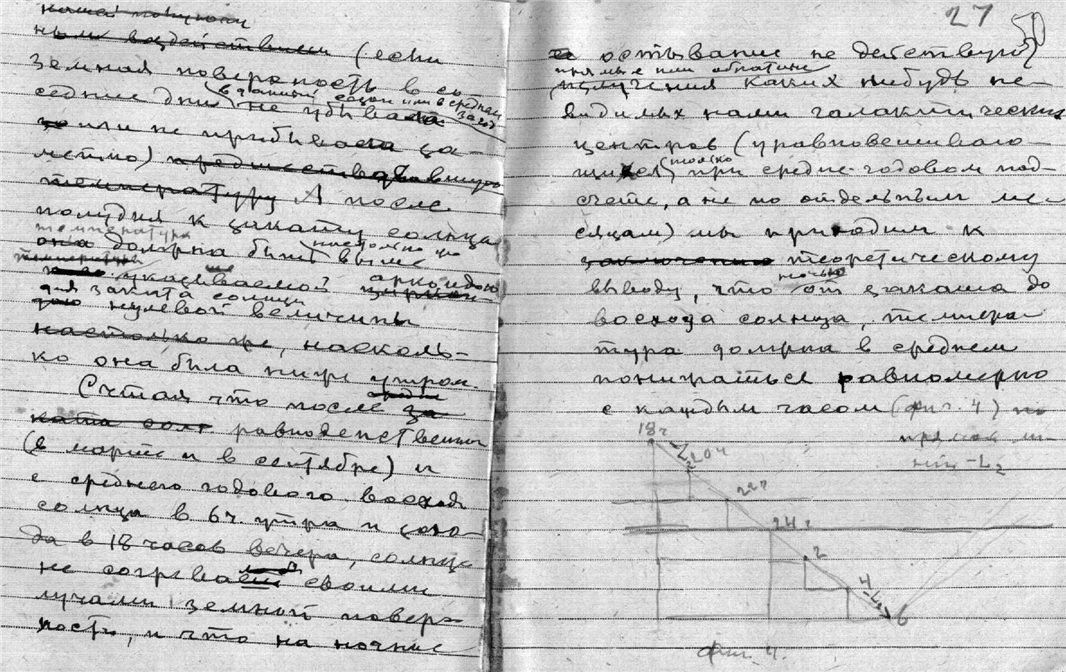 ным воздействием (если
земная поверхность в со
седние дни в данный сезон или в среднем за год не убывала
или не прибывала за-
метно) предшествовавшую
температуру А после
полудня к закату солнца
температура
она должна быть настолько же выше
температуры
указываемой
для заката солнца
нулевой величины
настолько же, насколь-
ко она была ниже утром.
Считая что после за
ката солн равноденственни
(в марте и в сентябре) и
с среднего годового восхода
солнца в 6 ч. утра и захо-
да в 18 часов вечера, солнце
не согревает своими
лучами земной поверх-
ности, и что на ночные
27
остывание не действуют
прямые или обратные
излучения каких нибудь не-
видимых нами галактических
центров (уравновешиваю-
щихся только при средне-годовом под-
счете, а не по отдельным ме-
сяцам) мы приходим к
заключению теоретическому
выводу, что ночью от заката до
восхода солнца, темпера-
тура должна в среднем
понижаться равномерно
с каждым часом (фиг. 4) по
прямой ли-
нии -L2
18ч
20ч
22ч
24ч
2
4
-L2
6
Фиг. 4.